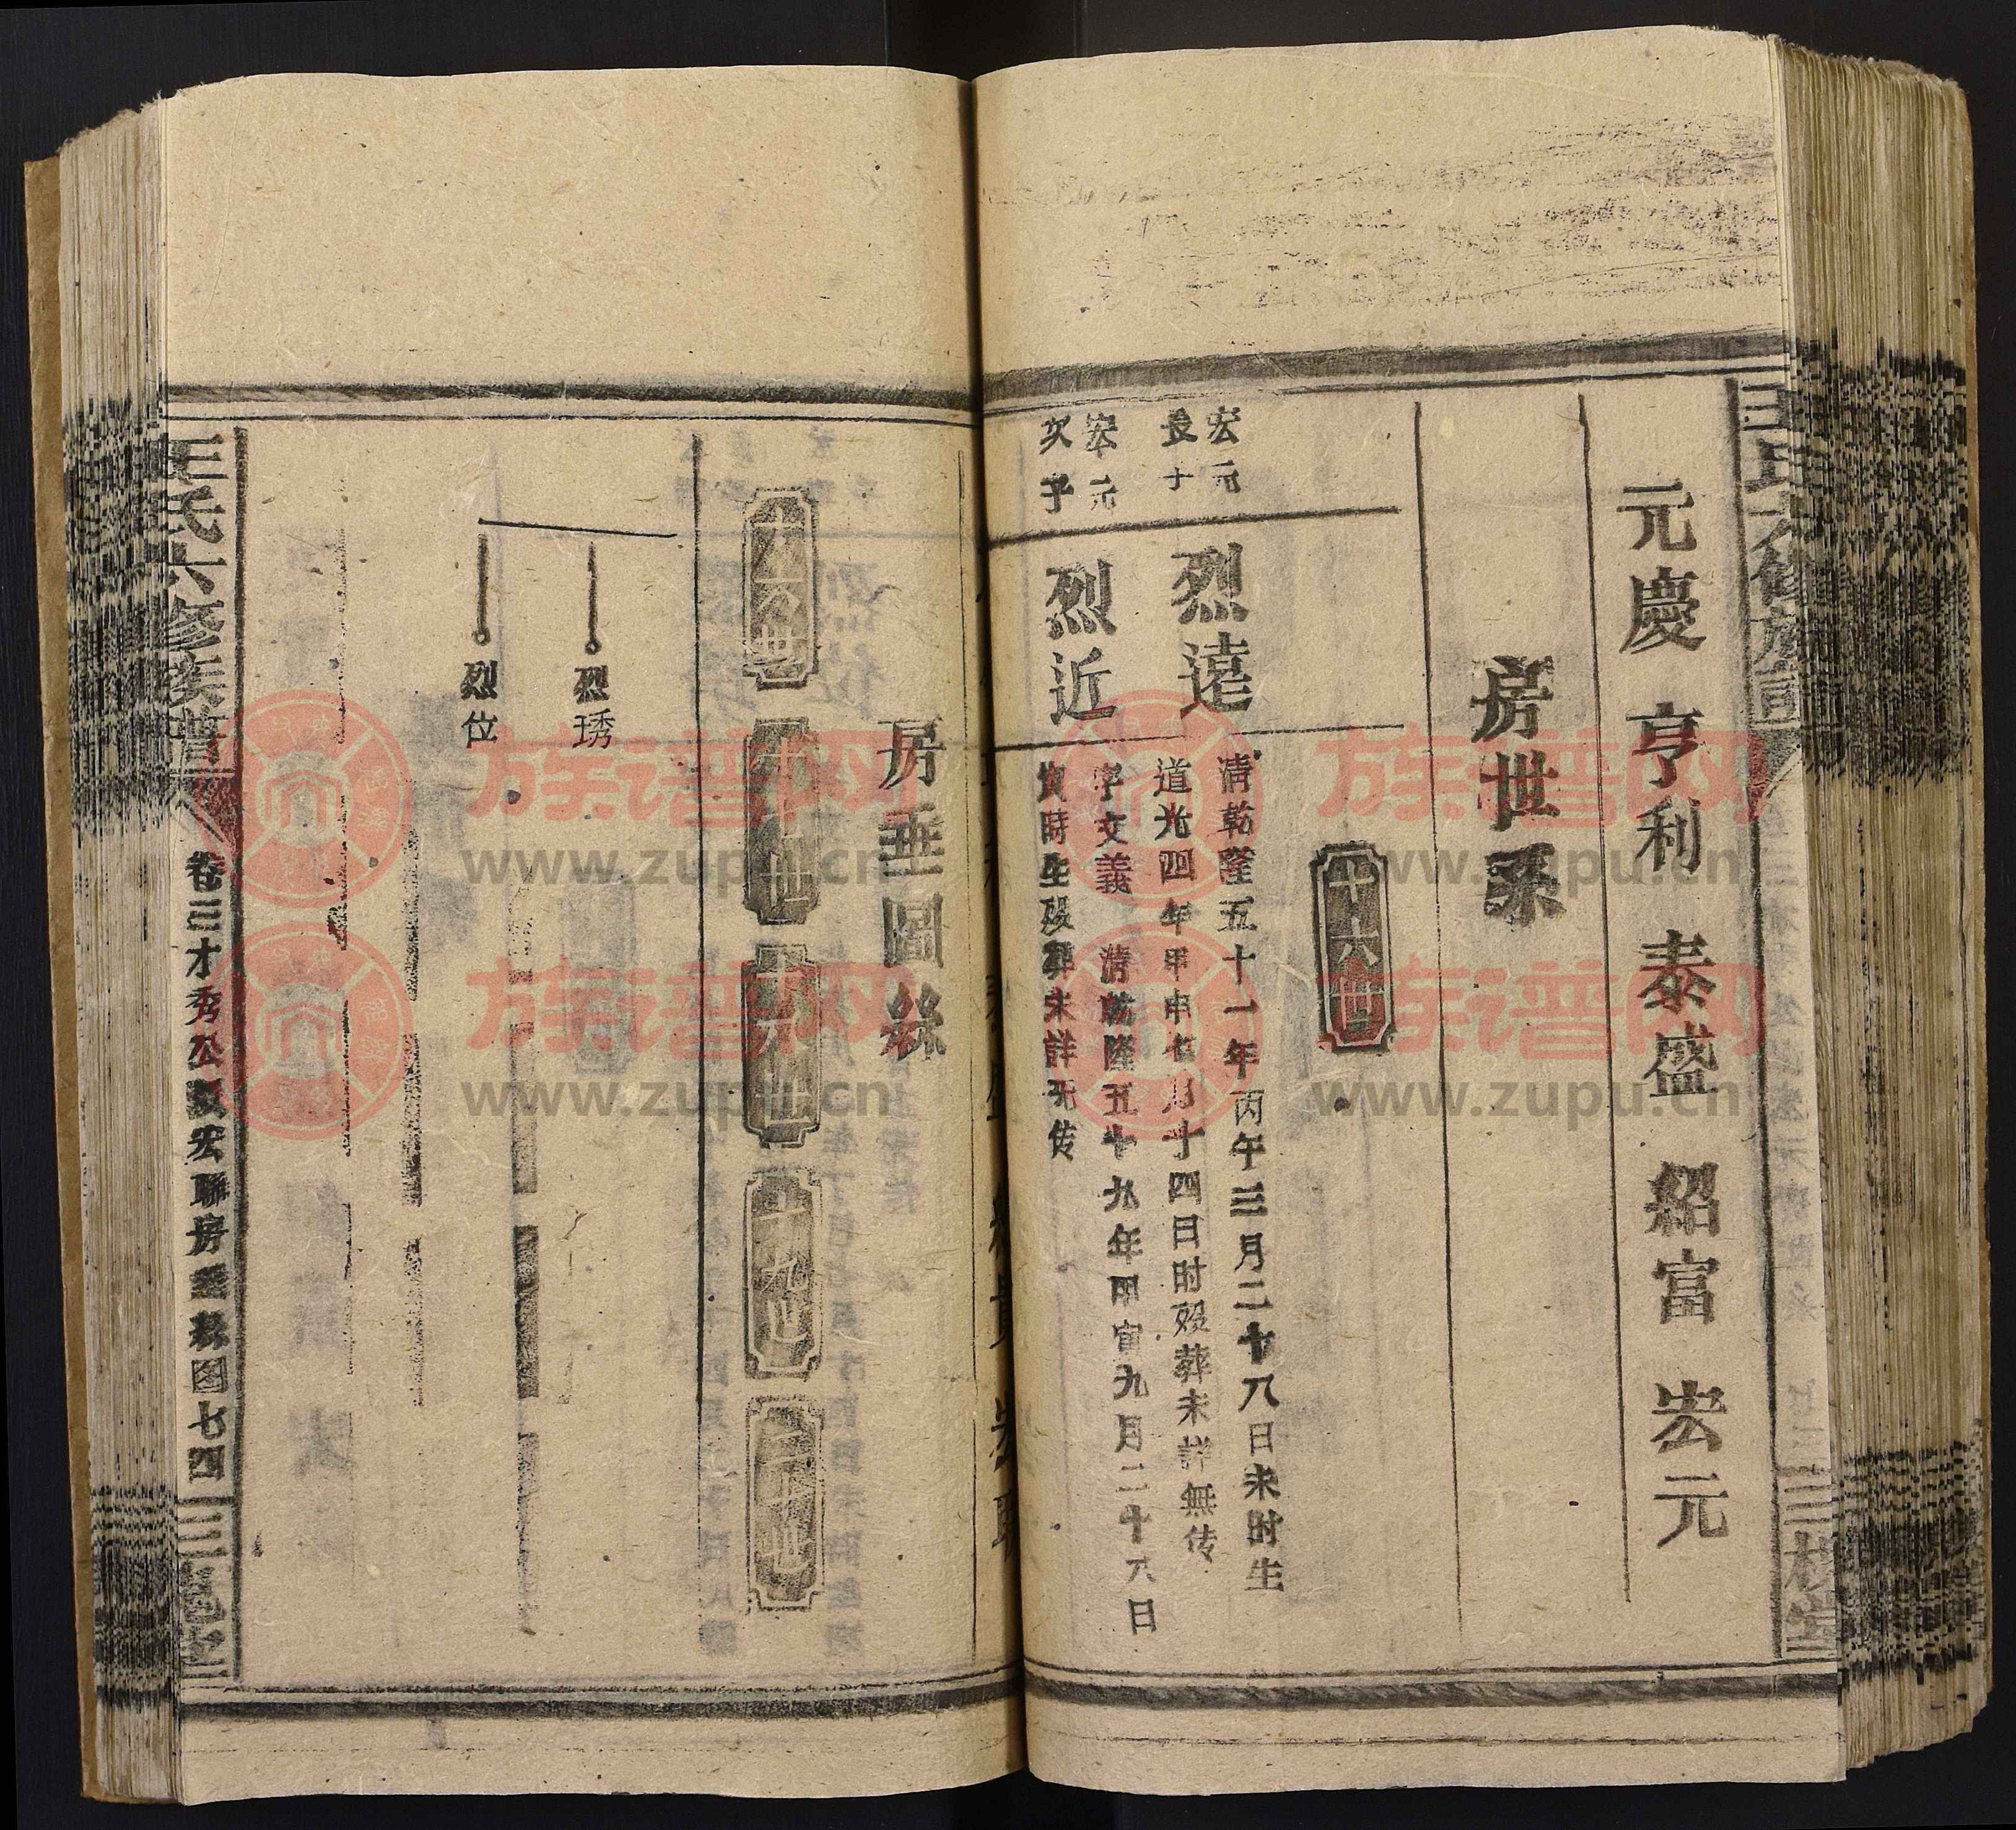 元慶 亨利 泰盛 紹富 宏元
房世系
十六世
宏元
長子
烈遠
清乾隆五十一年丙午三月二十八日未时生
道光四年甲申七月十四日时殁葬未詳無传
宏元
次子
烈近
字文義 清乾隆五十九年甲寅九月二十六日
寅時生殁葬未詳无传
房垂圖絲
十六世
十七世
十八世
十九世
二十世
烈琇
烈位
王氏六修族譜
卷三才秀公派宏聯房垂絲图七四
三槐堂
族谱网
www.zupu.cn
族谱网
www.zupu.cn
族谱网
www.zupu.cn
族谱网
www.zupu.cn